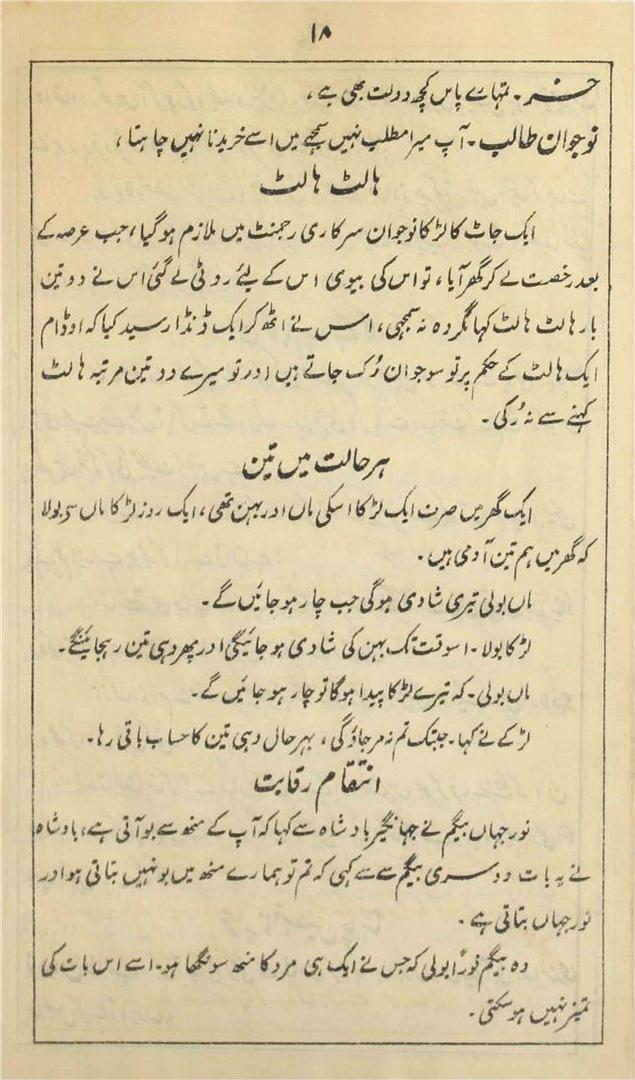 ۱۸
خسر۔ تمہارے پاس کچھ دولت بھی ہے،
نوجوان طالب۔ آپ میرا مطلب نہیں سمجھے میں اسے خریدنا نہیں چاہتا،
ہالٹ ہالٹ
ایک جاٹ کا لڑکا نوجوان سرکاری رجمنٹ میں ملازم ہو گیا، جب عرصہ کے
بعد رخصت لے کر گھر آیا، تو اس کی بیوی اس کے لیئے روٹی لے گئی اس نے دو تین
بار ہالٹ ہالٹ کہا مگر وہ نہ سمجھی، اس نے اٹھ کر ایک ڈنڈا رسید کیا کہ او ڈام
ایک ہالٹ کے حکم پر تو سو جوان رُک جاتے ہیں اور تو میرے دو تین مرتبہ ہالٹ
کہنے سے نہ رُکی۔
ہر حالت میں تین
ایک گھر میں صرف ایک لڑکا اسکی ماں اور بہن تھی، ایک روز لڑکا ماں سے بولا
کہ گھر میں ہم تین آدمی ہیں۔
ماں بولی تیری شادی ہوگی جب چار ہو جائیں گے۔
لڑکا بولا۔ اسوقت تک بہن کی شادی ہو جائیگی اور پھر وہی تین رہجائینگے۔
ماں بولی۔ کہ تیرے لڑکا پیدا ہوگا تو چار ہو جائیں گے۔
لڑکے نے کہا۔ جبتک تم نہ مر جاؤ گی، بہر حال وہی تین کا حساب باقی رہا۔
انتقام رقابت
نور جہاں بیگم نے جہانگیر بادشاہ سے کہا کہ آپ کے منھ سے بو آتی ہے، بادشاہ
نے یہ بات دوسری بیگم سے سے کہی کہ تم تو ہمارے منھ میں بو نہیں بتاتی ہو اور
نور جہاں بتاتی ہے۔
وہ بیگم فوراً بولی کہ جس نے ایک ہی مرد کا منھ سونگھا ہو۔ اسے اس بات کی
تمیز نہیں ہو سکتی۔